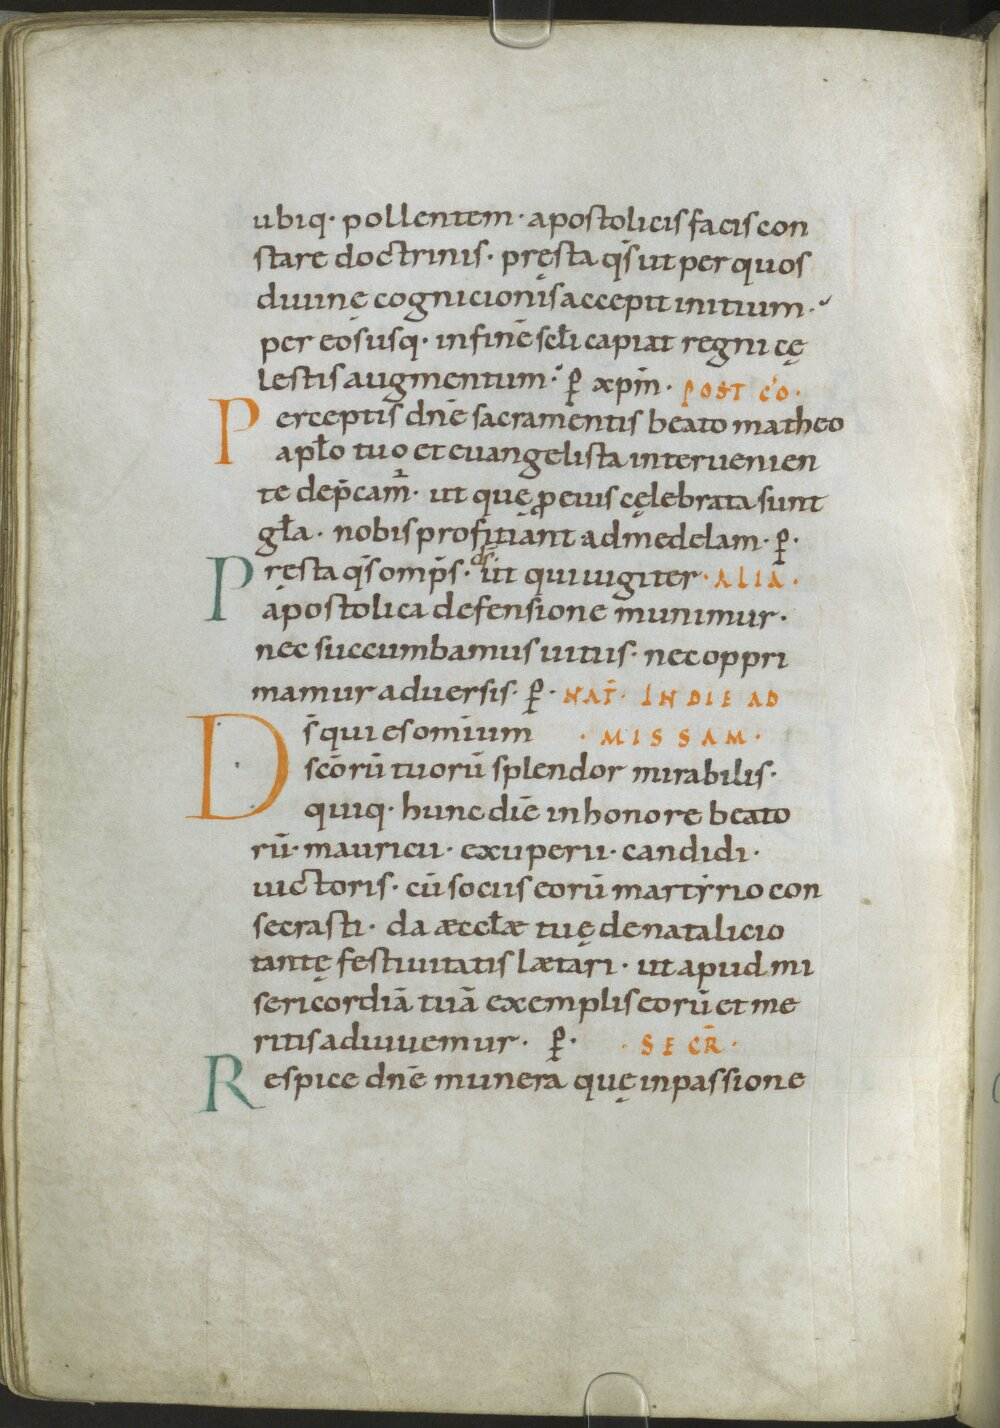 ubiq· pollentem· apostolicis facis con
stare doctrinis· pręsta qs̄ ut per quos
diuinę cognicionis accepit initium·
per eos usq· in finē scłi capiat regni cę
lestis augmentum· p̲ xp̄m· POST C̄O·
Perceptis dn̄e sacramentis beato matheo
apło tuo et euangelista interuenien
te dep̄cam̄· ut quę ꝓ eius cęlebrata sunt
gła· nobis proficiant ad medelam· p̲·
Pręsta qs̄ omp̄s· ds̄ ut qui iugiter· ALIA·
apostolica defensione munimur·
nec succumbamus uitiis· nec oppri
mamur aduersis· p̲· NAT̄· IN DIE AD
Ds̄ qui es omnium · MISSAM·
sc̄orū tuorū splendor mirabilis·
quiq· hunc diē in honore beato
rū· mauricii· exuperii· candidi·
uictoris· cū sociis eorū martyrio con
secrasti· da æccłæ tuę de natalicio
tantę festiuitatis lætari· ut apud mi
sericordiā tuā exemplis eorū et me
ritis adiuuemur· p̲· · SECR̄·
Respice dn̄e munera quę in passione